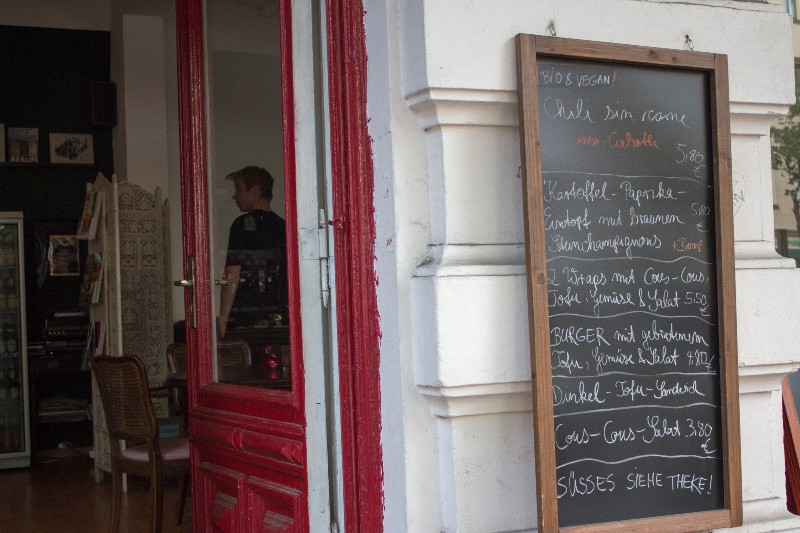 BIO & VEGAN!
Chili sin carne
5,80
€
Kartoffel-Paprika-
Eintopf mit braunen 5,80
Steinchampignons + Brot
2 Wraps mit Cous-Cous,
Tofu, Gemüse & Salat 5,50
€
BURGER mit gebratenem
Tofu, Gemüse & Salat 4,80
€
Dinkel-Tofu-
Cous-Cous-Salat 3,80
€
SÜSSES SIEHE THEKE!